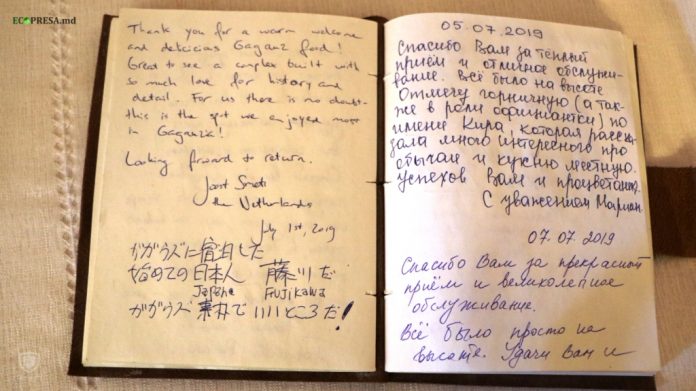 ECOPRESA.md
Thank you for a warm welcome
and delicious Gagauz food!
Great to see a complex built with
so much love for history and
detail. For us there is no doubt-
this is the spot we enjoyed most
in Gagauzia!
Looking forward to return.
Joost
the Netherlands
July 1st, 2019
ガガウズに宿泊した
始めての日本人 藤川だ
FUJIKAWA
ガガウズ 素朴で いいところだ!
05.07.2019
Спасибо Вам за тёплый
приём и отличное обслужи-
вание. Всё было на высоте
Отмечу горничную (а так-
же в роли официантки) по
имени Кира, которая расска-
зала много интересного про
обычаи и кухню местную.
Успехов Вам и процветания.
С уважением Мариан.
07.07.2019
Спасибо Вам за прекрасный
приём и великолепное
обслуживание.
Всё было просто на
высоте. Удачи Вам и